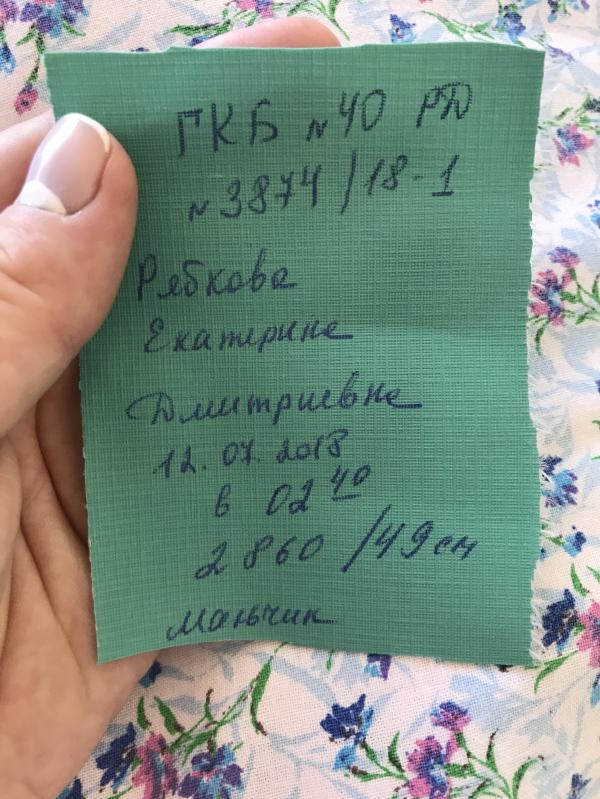 ГКБ N 40 РД
N 3874/18-1
Рябкова
Екатерина
Дмитриевна
12.07.2018
в 02 40
2860/49 см
мальчик